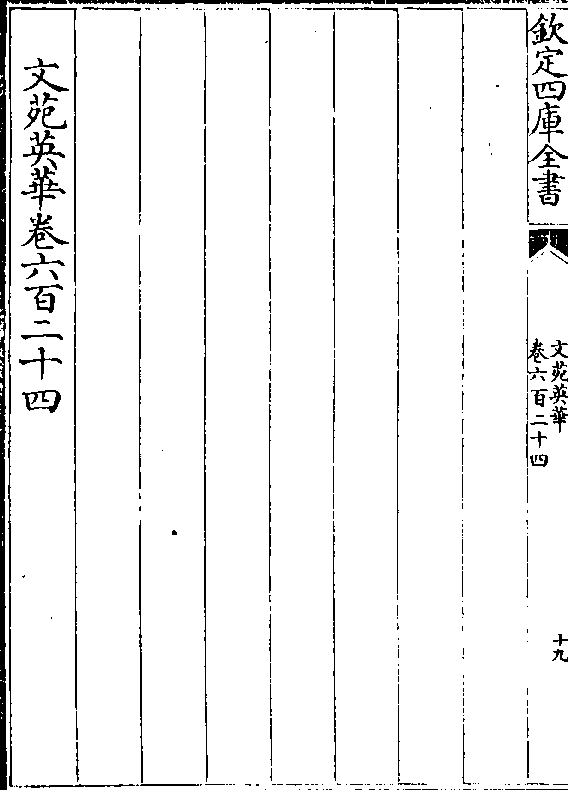 欽定四庫全書
文苑英華
卷六百二十四
十九
文苑英華卷六百二十四